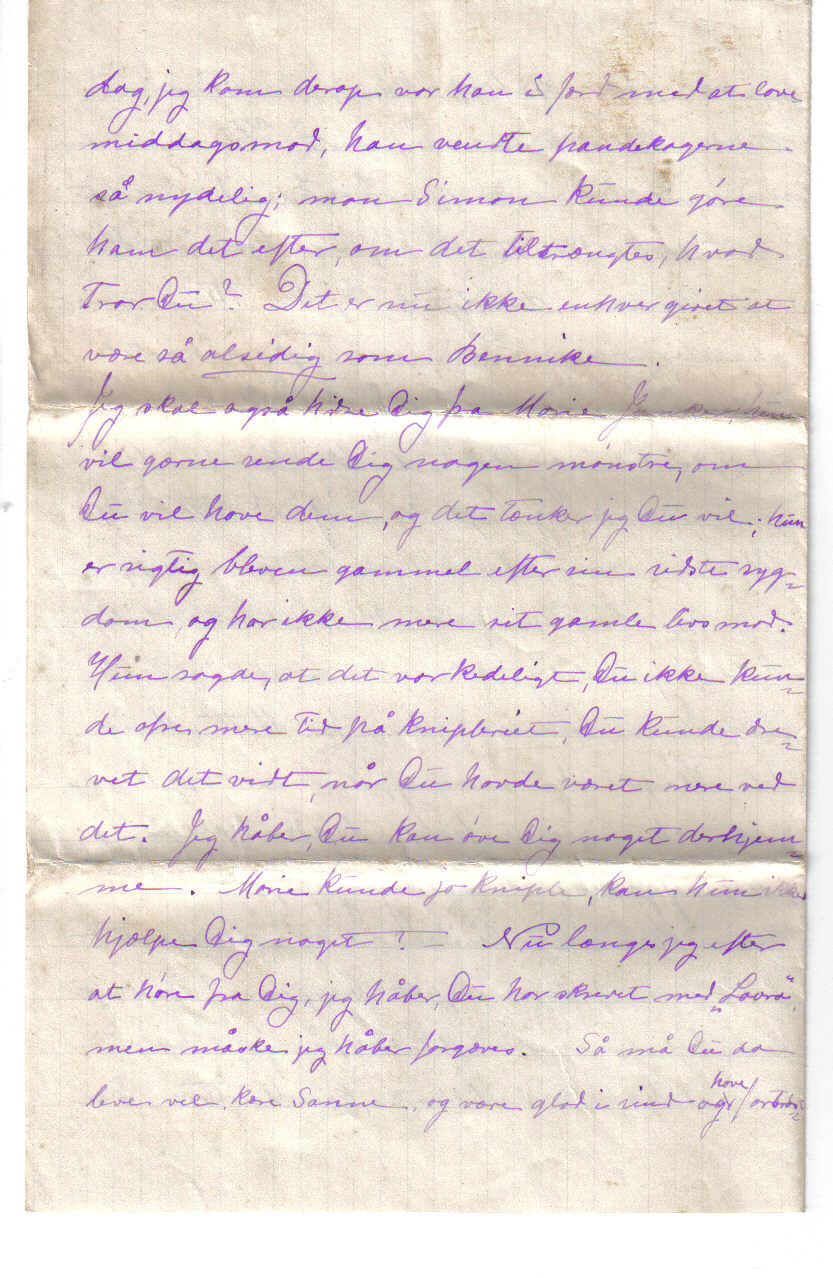 dag, jeg kom derop var han i færd med at lave
middagsmad, han vendte pandekagerne
så nydelig; mon Simon kunde göre
ham det efter, om det tiltrængtes, hvad
Tror Du? Det er nu ikke enhver givet at
være så alsidig som Bennike.
Jeg skal også hilse Dig fra Marie hun
vil gærne sende Dig nogen mönstre, om
Du vil have dem, og det tænker jeg Du vil; hun
er rigtig bleven gammel efter sin sidste syg-
dom, og har ikke mere sit gamle livsmod.
Hun sagde, at det var kedeligt, Du ikke kun-
de ofre mere Tid på knipleriet, Du kunde dre-
vet det vidt, når Du havde været mere ved
det. Jeg håber, Du kan öve Dig noget derhjem-
me. Marie kunde jo kniple, kan hun ikke
hjælpe Dig noget? Nu længes jeg efter
at höre fra Dig, jeg håber, Du har skrevet med „Laura",
men måske jeg håber forgæves. Så må Du da
leve vel, kære Sanne, og være glad i sind og have